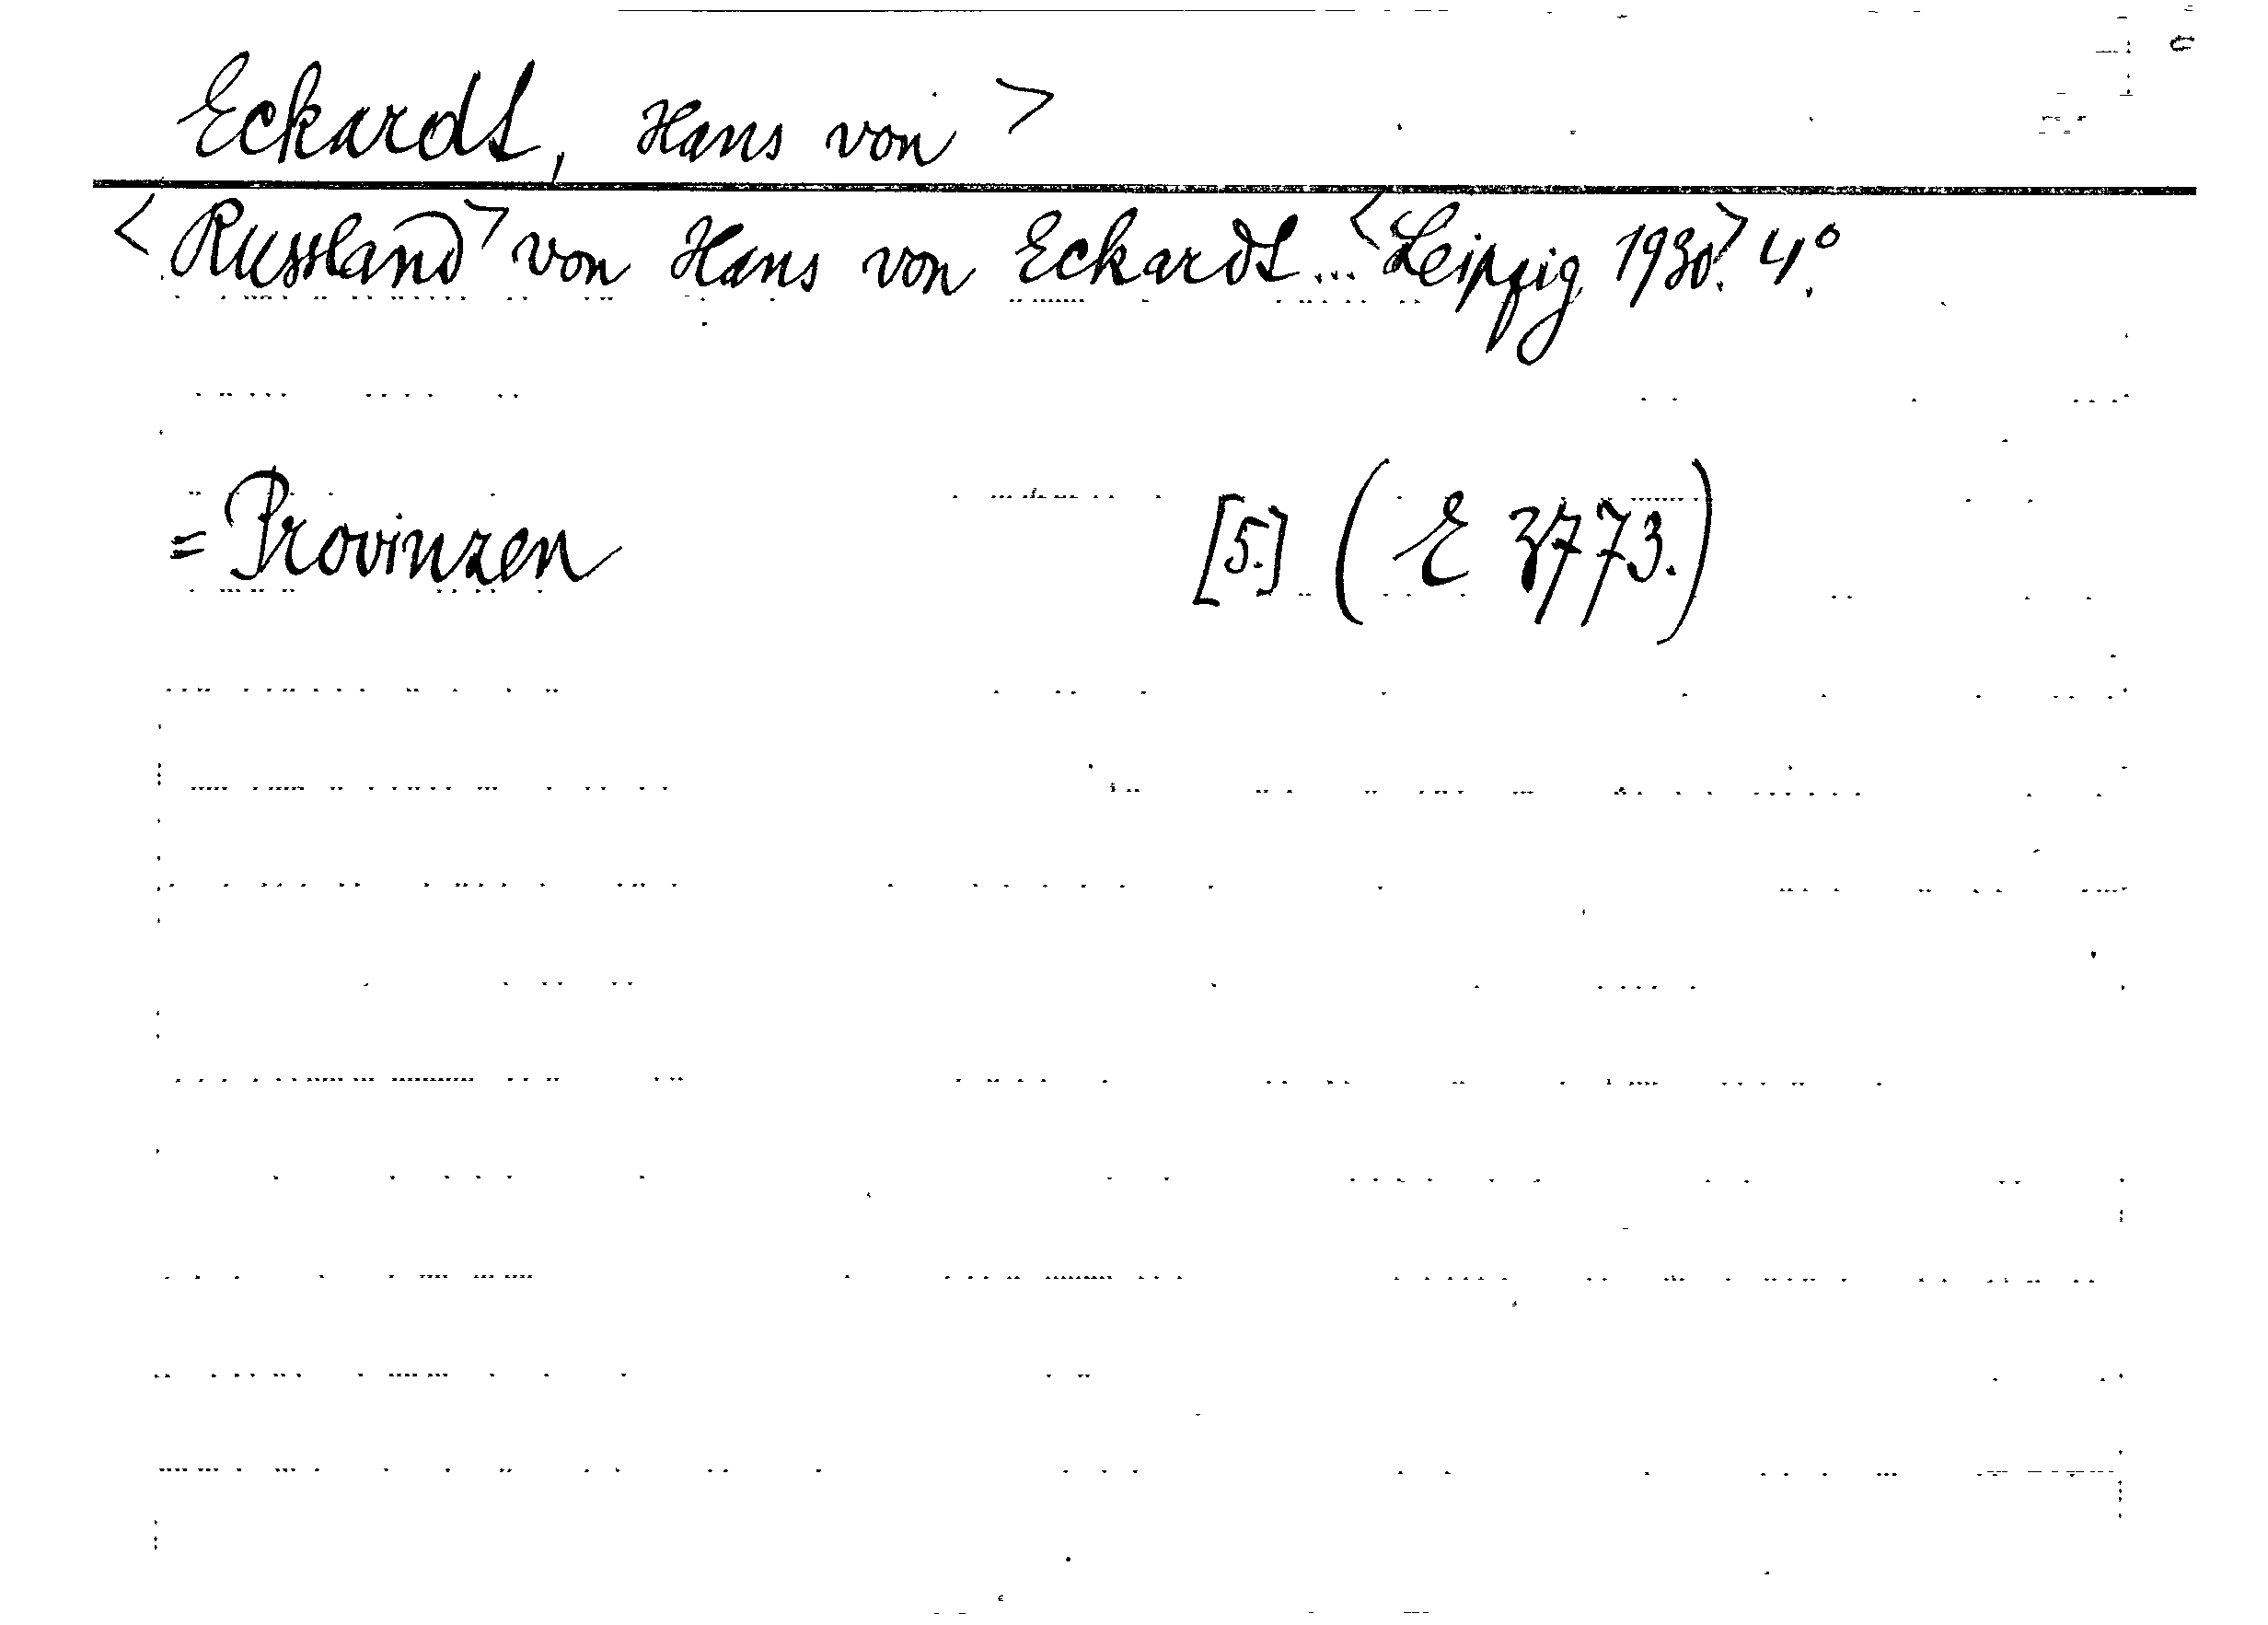 Eckardt, Hans von >
<Russland> von Hans von Eckardt... <Leipzig 1930.> 4.°
= Provinzen [5.] (E 3773.)